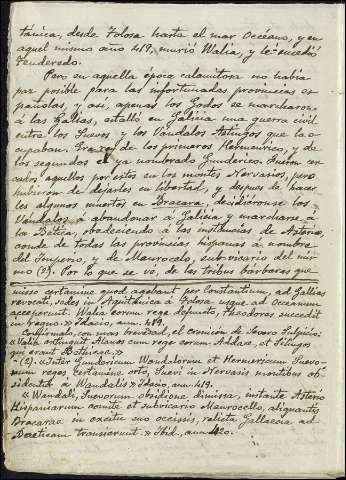 tánica, desde Tolosa hasta el mar Océano, y en
aquel mismo año 419, murió Walia, y le sucedió
Teuderedo.
Pero en aquella época calamitosa no había
paz posible para las infortunadas provincias es-
pañolas, y así, apenas los Godos se marcharon
á las Galias, estalló en Galicia una guerra civil
entre los Suevos y los Vándalos Asingos que la o-
cupaban. Era rey de los primeros Hermenrico, y de
los segundos el ya nombrado Gunderico. Fueron cer-
cados aquellos por estos en los montes Nervasios, pero
hubieron de dejarles en libertad, y despues de hacer-
les algunos muertos en Bracara, decidiéronse los
Vándalos á abandonar á Galicia y marcharse á
la Bética, obedeciendo á las instancias de Asterio
conde de todas las provincias hispanas á nombre
del Imperio, y de Maurocelo, subvicario del mis-
mo (2). Por lo que se ve, de las tribus bárbaras que
misso certamine quod agebant per Constantium, ad Gallias
revocati, sedes in Aquitanica à Tolosa usque ad Oceanum
acceperunt. Walia eorum rege defuncto, Theodores succedit
in regno.» Idacio, ann. 419.
Confírmalo, con mas brevedad, el Cronicón de Severo Sulpicio:
«Valia extinguit Alanos cum rege eorum Addace, et Silingos
qui erant Bethicae.»
(2). «Inter Gundericum Wandalorum et Hermericum Suevo-
rum reges certamine orto, Suevi in Nervasis montibus ob-
sidentur à Wandalis» Idacio, ann. 419.
«Wandali, Suevorum obsidione dimissa, instante Asterio
Hispaniarum comite et subvicario Maurocello, aliquantis
Bracarae in exitu suo occissis, relicta Gallaecia ad
Baeticam transierunt.» Ibid., ann. 420.